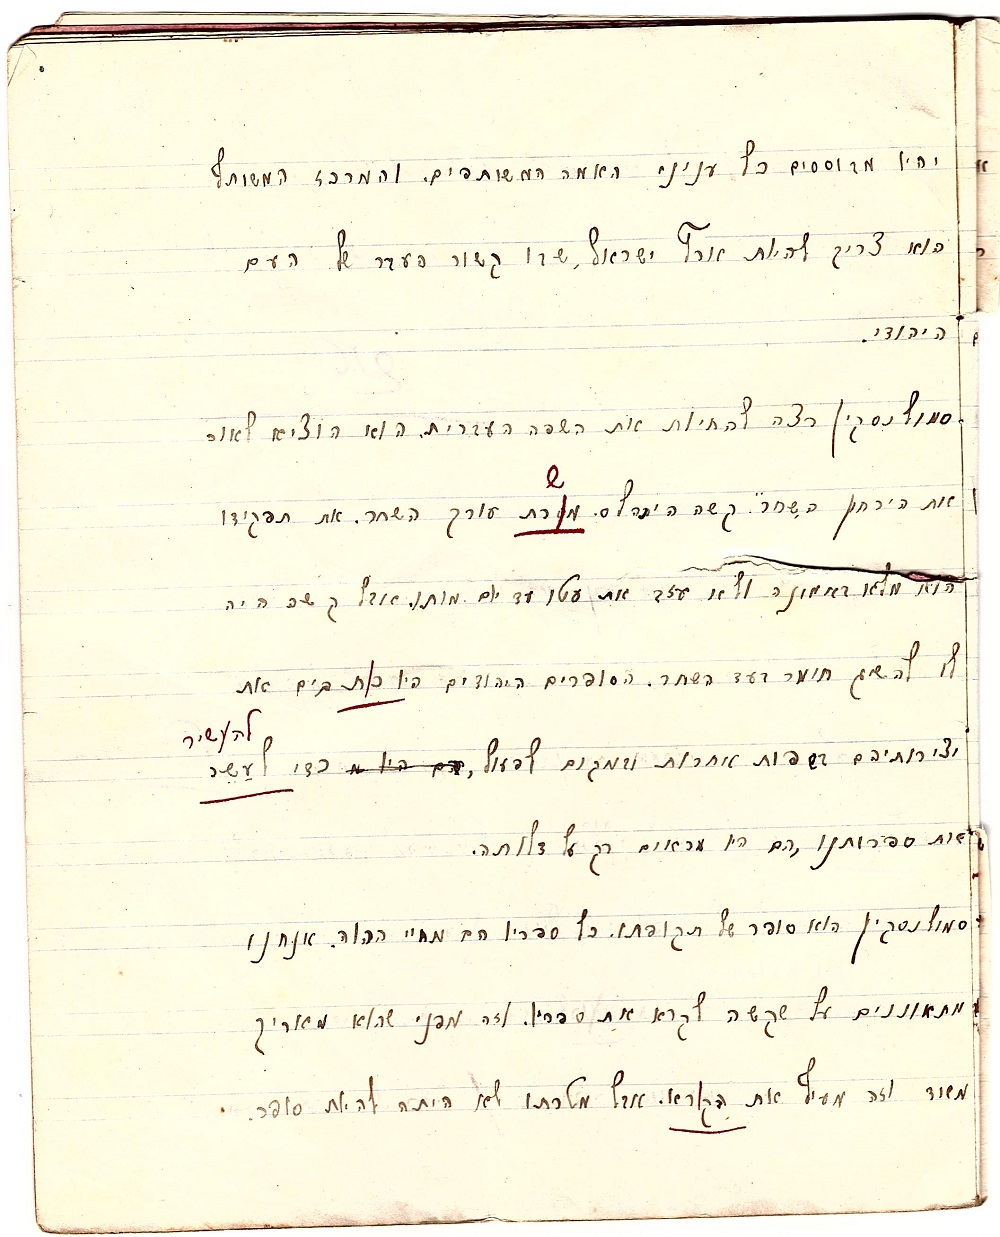 יהיו מבוססים כל עניני האמה המשותפים. והמרכז המשותף
הוא צריך להיות ארץ ישראל, שבו קשור העבר של העם
היהודי.
סמולנסקין רצה להחיות את השפה העברית. הוא הוציא לאור
את הירחון "השחר". קשה היתה לו
ש
מטרת עורך השחר. את תפקידו
הוא מלא באמונה ולא עזב את עטו עד יום מותו. אבל קשה היה
לו להשיג חומר בעד השחר. הסופרים היהודים היו כותבים את
להעשיר
יצירותיהם בשפות אחרות ובמקום לפעול, הם היו מ כדי לעשר
את ספרותנו, הם היו מראים רק על דלותה.
סמולנסקין הוא סופר של תקופתו. כל ספריו הם מחיי ההוה. אנחנו
מתאוננים על שקשה לקרא את ספריו. וזה מפני שהוא מאריך
מאוד וזה מעיף את הקורא. אבל מטרתו לא היתה להיות סופר.